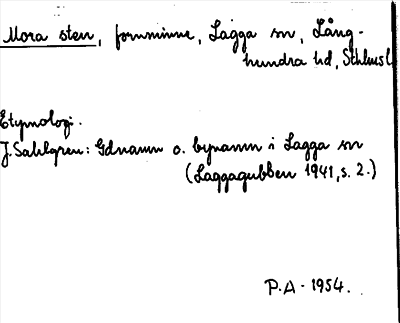 Mora sten, fornminne, Lagga sn, Lång-
hundra hd, Sthlmsl
Etymologi.
J. Sahlgren: Gdnamn o. bynamn i Lagga sn
(Laggagubben 1941, s. 2.)
P.A - 1954.